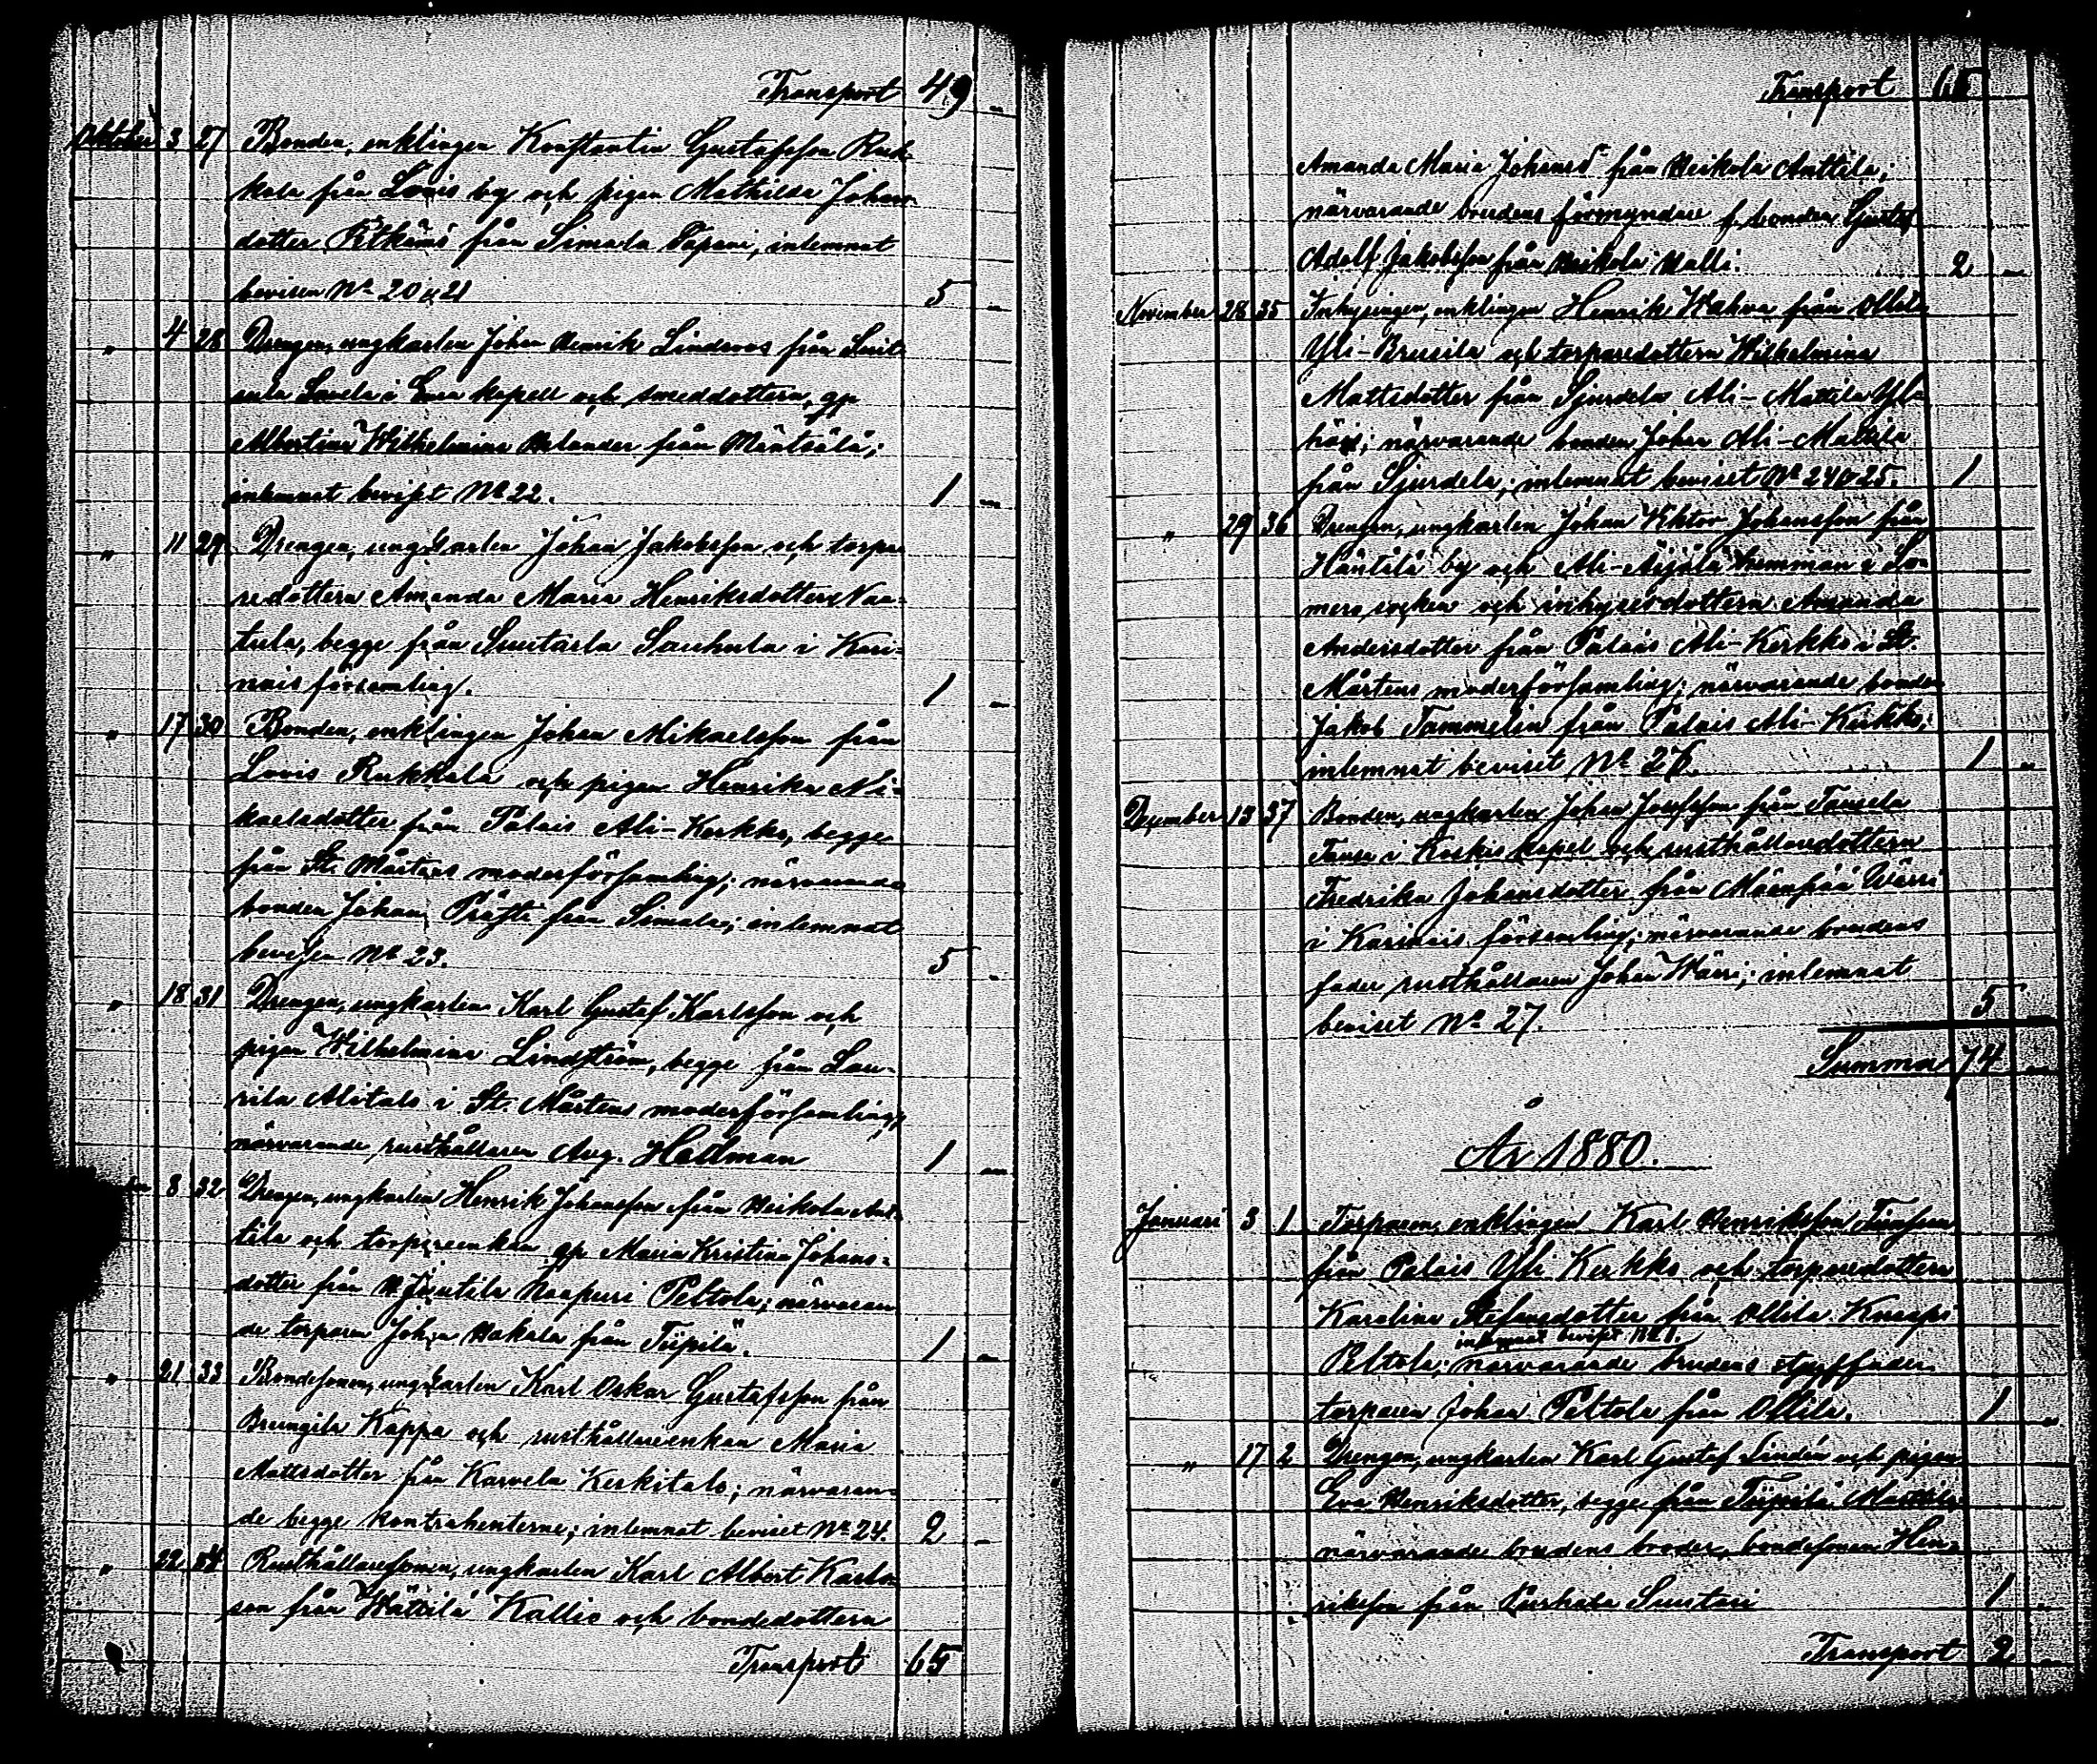 Transport 49 -
Oktober 3 27 Bonden, enklingen Konstantin Gustafsson Ruk-
kala från Lovis by och pigan Mathilda Johans-
dotter Pitkäniö från Simala Tapani, inlemnat
bevisen No 20 & 21 5 -
" 4 28 Drengen, ungkarlen Johan Henrik Linderos från Suit-
sula Lavela i Eura kapell och smeddottern, gp
Albertina Wilhelmina Helander från Mäntsälä;
inlemnat beviset No 22. 1 -
" 11 29 Drengen, ungkarlen Johan Jakobsson och torpa-
redottern Amanda Maria Henriksdotter Naa-
tula, begge från Suutarla Sauhula i Kari-
nais församling. 1 -
" 17 30 Bonden, enklingen Johan Mikaelsson från
Lovis Rukkala och pigan Henrika Mi-
kaelsdotter från Palais Ali-Kerkko, begge
från St. Mårtens moderförsamling; närvarande
bonden Johan Präfti från Simala; inlemnat
bevisen No 23. 5 -
" 18 31 Drengen, ungkarlen Karl Gustaf Karlsson och
pigan Wilhelmina Lindström, begge från Lau-
rila Alitalo i St. Mårtens moderförsamling;
närvarande rusthållaren Aug. Hellman 1 -
8 32 Drengen, ungkarlen Henrik Johansson från Heikola Ant-
tila och torpareenkan gp Maria Kristina Johans-
dotter från Naapuri Peltola; närvaran-
de torparen Johan Hakala från Tiipilä. 1 -
" 21 33 Bondesonen, ungkarlen Karl Oskar Gustafsson från
Brungila Kappa och rusthållareenkan Maria
Mattsdotter från Karvela Kerkitalo; närvaran-
de begge kontrahenterne; inlemnat beviset No 24. 2 -
" 22 34 Rusthållaresonen, ungkarlen Karl Albert Karls-
son från Wättilä Kallis och bondedottern
Transport 65
Transport 65
Amanda Maria Johansdr från Heikola Anttila;
närvarande brudens förmyndare f. bonden Gustaf
Adolf Jakobsson från Heikola Halli. 2 -
November 28 35 Inhysingen, enklingen Henrik Wahva från Ollila
Yli-Brusila och torparedottern Wilhelmina
Mattsdotter från Sjurdela Ali-Mattila Yli-
närvarande bonden Johan Ali-Mattila
från Sjurdela; inlemnat beviset No 24 & 25. 1
" 29 36 Drengen, ungkarlen Johan Viktor Johansson från
Häntälä by och Ali-Äijälä hemman i So-
mero socken och inhysesdottern Amanda
Andersdotter från Palais Ali-Kerkko i St.
Mårtens moderförsamling; närvarande bonden
Jakob Tammelin från Palais Ali-Kerkko;
inlemnat beviset No 26. 1 -
December 13 37 Bonden, ungkarlen Johan Josefsson från Tausela
Tausu i Koskis kapel och rusthållaredottern
Fredrika Johansdotter från Mäenpää Wärri
i Karinais församling; närvarande brudens
fader, rusthållaren Johan Wärri; inlemnat
beviset No 27. 5
Summa 74 -
År 1880.
Januari 3 1 Torparen, enklingen Karl Henriksson
från Palais Yli Kerkko och torparedottern
Karolina Stefansdotter från Ollila Knaapi
inlemnat beviset No 1.
Peltola; närvarande brudens styffader
torparen Johan Peltola från Ollila. 1 -
" 17 2 Drengen, ungkarlen Karl Gustaf Lindén och pigan
Eva Henriksdotter, begge från Tiipilä Mattila
närvarande brudens broder, bondesonen Hen-
riksson från Suutari 1 -
Transport 2 -